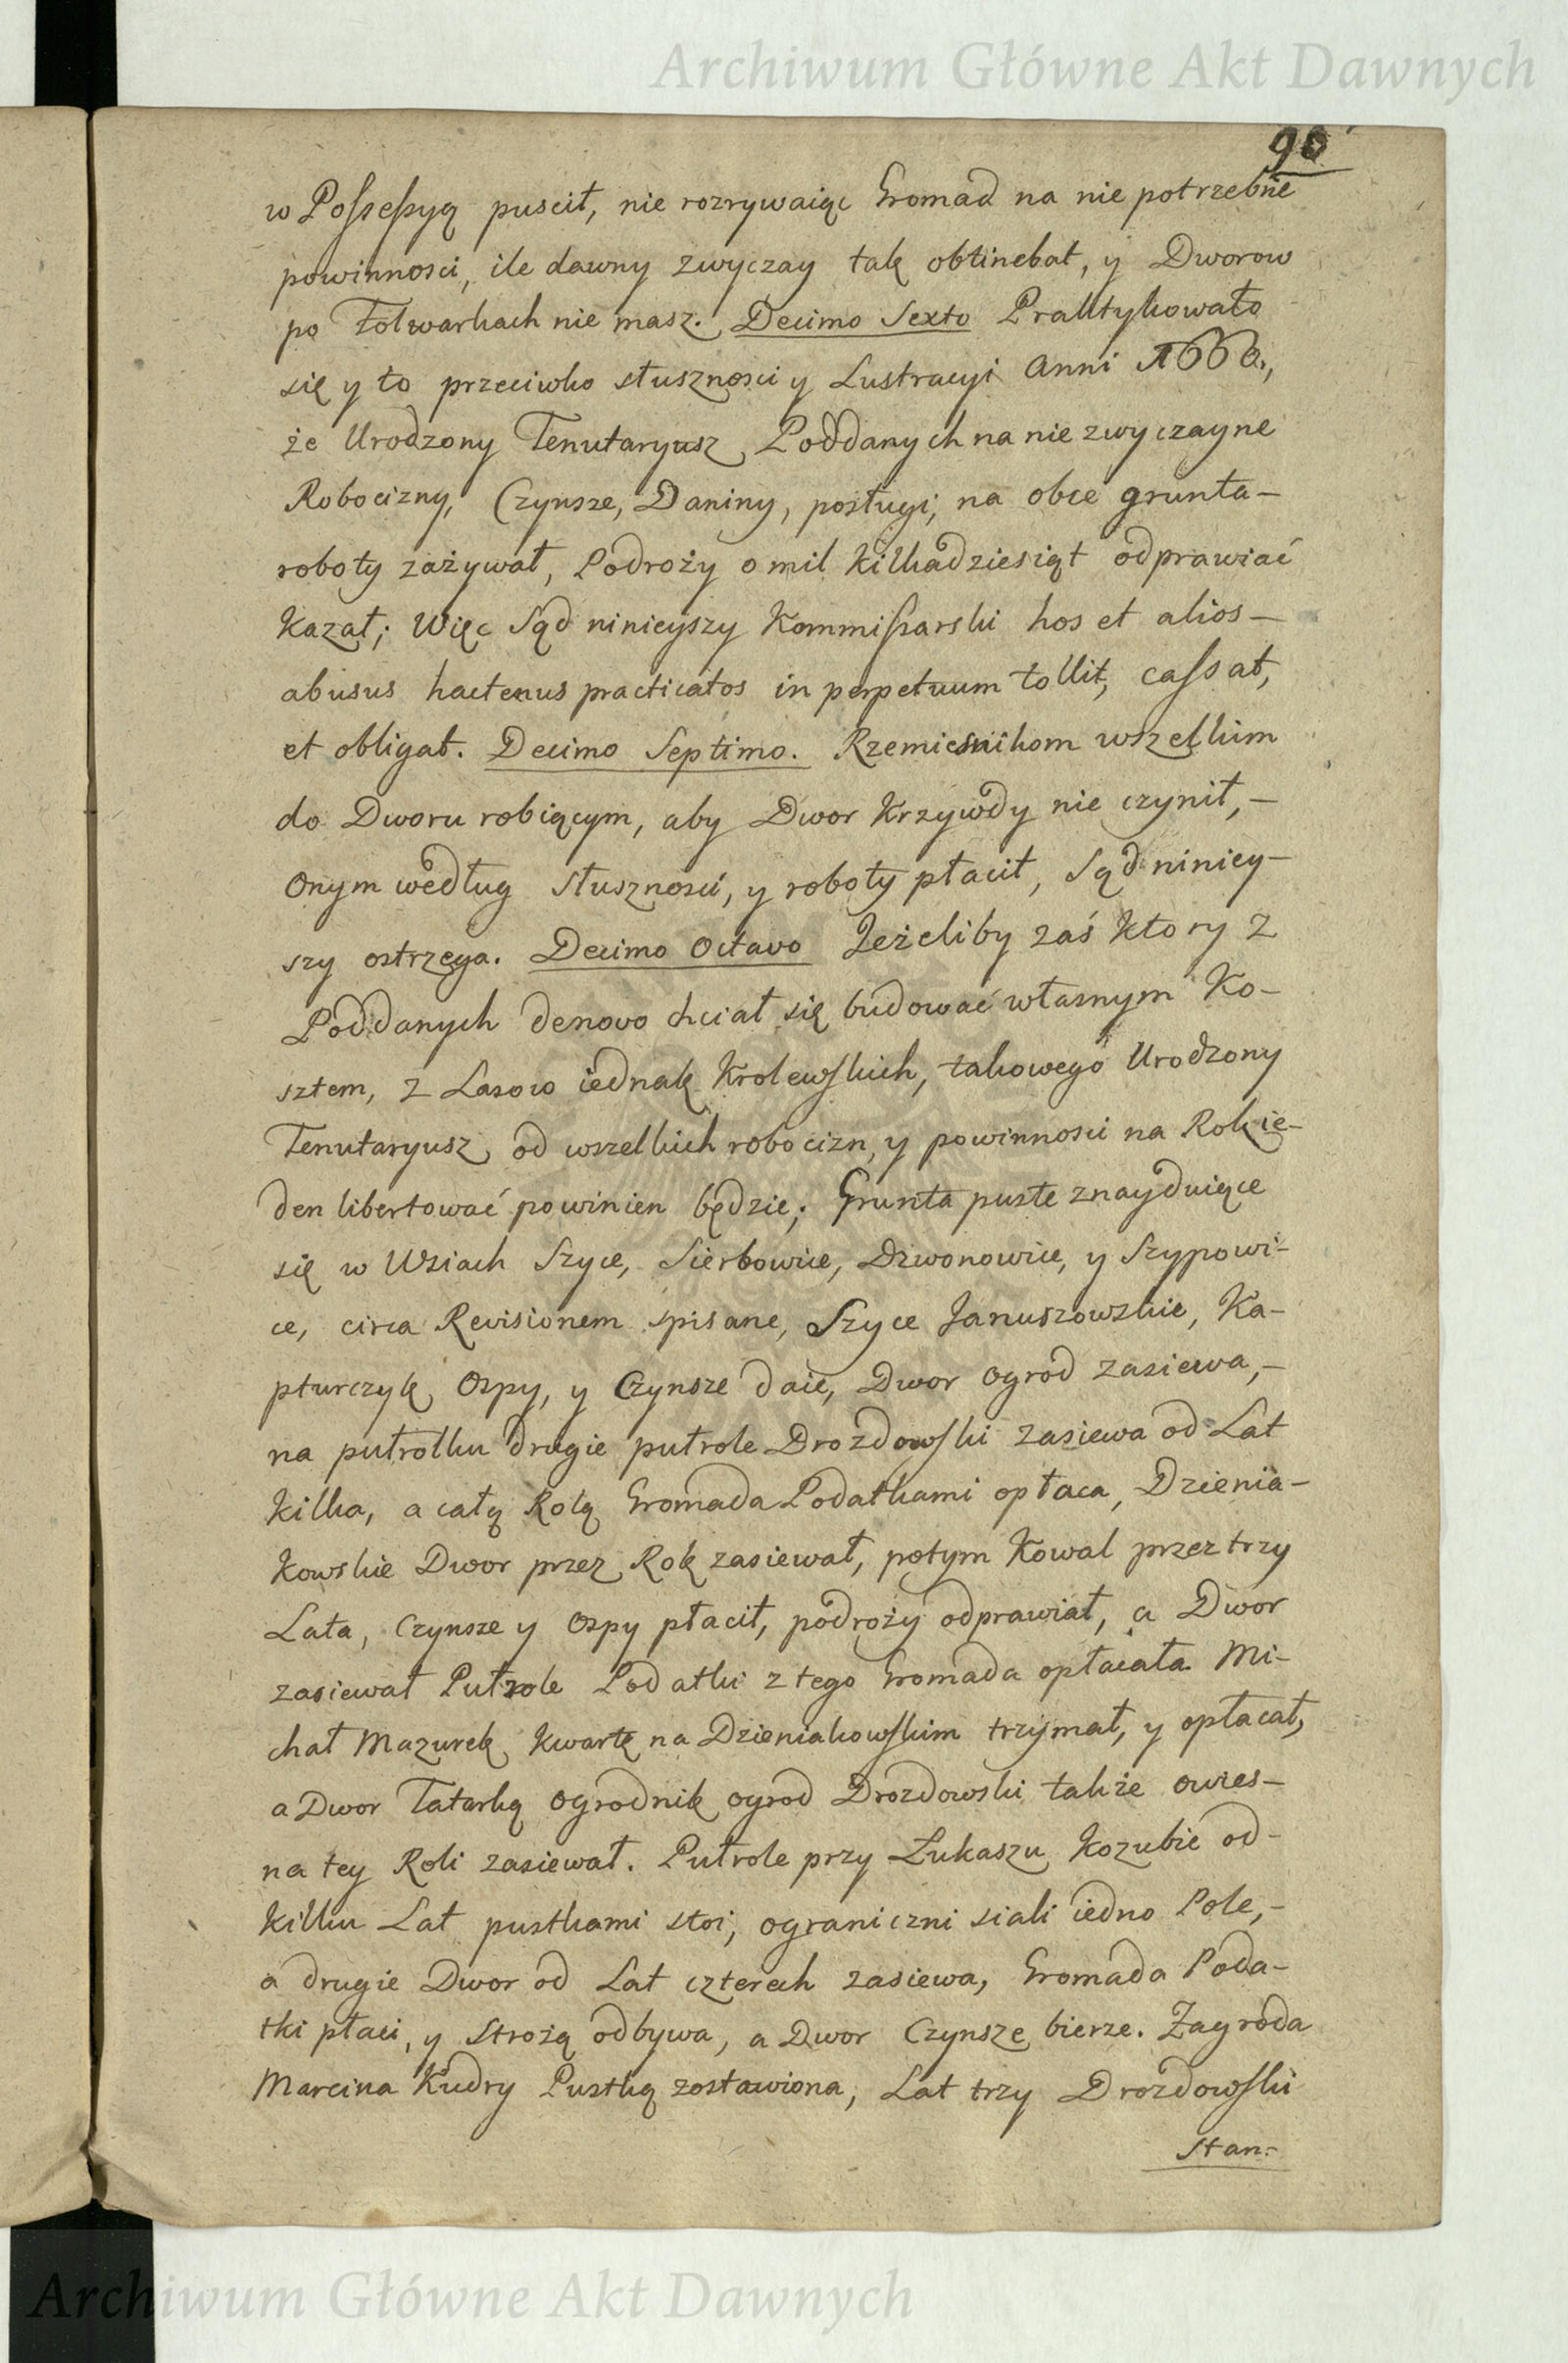 Archiwum Główne Akt Dawnych
90
w Possessyą puscił, nie rozrywaiąc Gromad na nie potrzebne
powinnosci, ile dawny zwyczay tak obtinebat, y Dworow
po Folwarkach nie masz. Decimo Sexto Praktykowało
się y to przeciwko słusznosci y Lustracyi Anni 1660.,
że Urodzony Tenutaryusz Poddanych na nie zwyczayne
Robocizny, Czynsze, Daniny, posługi, na obce grunta—
roboty zażywał, Podroży o mil kilkadziesiąt odprawiać
kazał; Więc Sąd ninieyszy Kommissarski hos et alios—
abusus hactenus practicatos in perpetuum tollit, cassat,
et obligat. Decimo Septimo. Rzemiesnikom wszelkim
do Dworu robiącym, aby Dwor Krzywdy nie czynił,—
Onym według słusznosci, y roboty płacił, Sąd niniey-
szy ostrzega. Decimo Octavo Jeżeliby zaś ktory z
Poddanych denovo chciał się budować własnym Ko-
sztem, z Lasow iednak Krolewskich, takowego Urodzony
Tenutaryusz od wszelkich robocizn, y powinnosci na Rok ie-
den libertować powinien będzie; Grunta puste znayduiące
się w Wsiach Szyce, Sierbowice, Dzwonowice, y Szypowi-
ce, circa Revisionem spisane, Szyce Januszowskie, Ka-
pturczyk Ospy, y Czynsze daie, Dwor ogrod zasiewa,—
na pułrolku drugie pułrole Drozdowski zasiewa od Lat
kilka, a całą Rolą Gromada Podatkami opłaca, Dzienia-
kowskie Dwor przez Rok zasiewał, potym Kowal przez trzy
Lata, Czynsze y Ospy płacił, podroży odprawiał, a Dwor
zasiewał Pułrole Podatki z tego Gromada opłacała. Mi-
chał Mazurek kwartę na Dzieniakowskim trzymał, y opłacał,
a Dwor Tatarką ogrodnik ogrod Drozdowski także owies—
na tey Roli zasiewał. Pułrole przy Łukaszu Kozubie od-
kilku Lat pustkami stoi, ograniczni siali iedno Pole,—
a drugie Dwor od Lat czterech zasiewa, Gromada Poda-
tki płaci, y Strożą odbywa, a Dwor Czynsze bierze. Zagroda
Marcina Kudry Pustką zostawiona, Lat trzy Drozdowski
stan=
Archiwum Główne Akt Dawnych